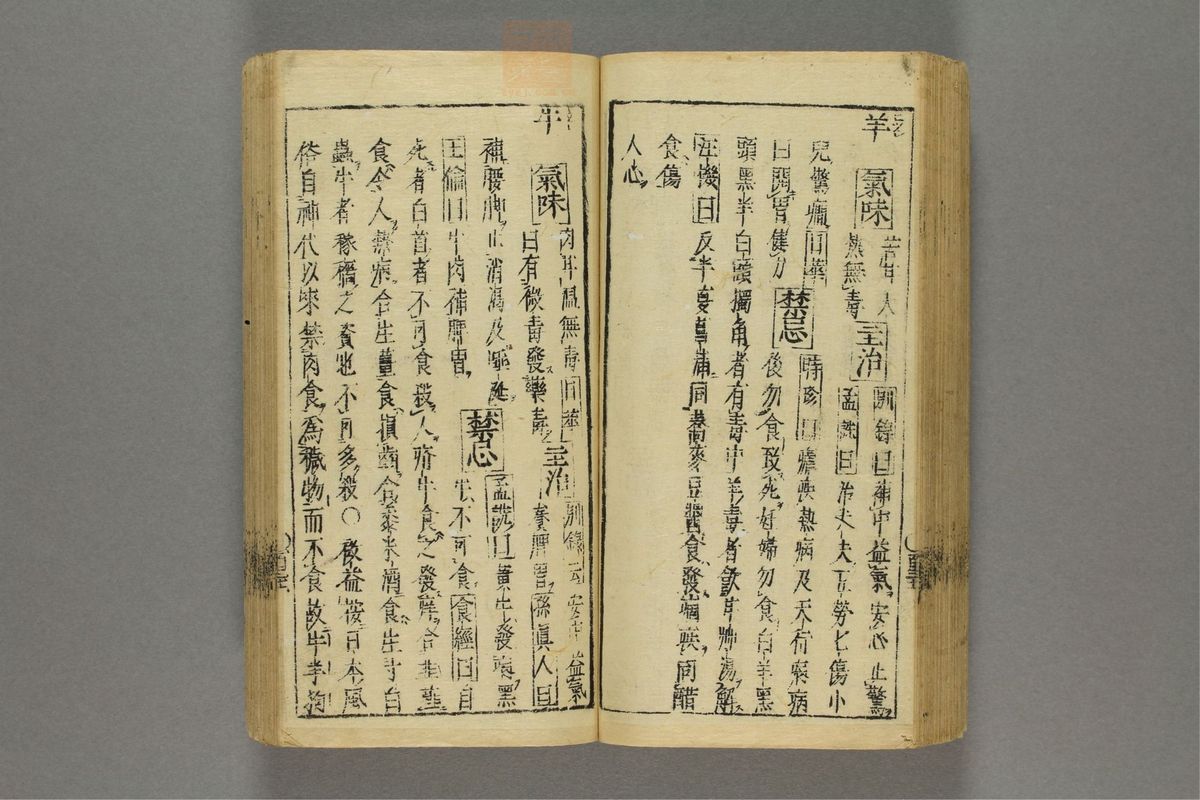 羊
氣味 苦甘大
熱無毒 主治 別錄曰補中益氣安心止驚
孟詵曰治丈夫五勞七傷小
兒驚癇日華
曰開胃健力 禁忌 時珍曰熱病及天行病瘧病
後勿食致死妊婦勿食白羊黑
頭黑羊白頭獨角者有毒中羊毒者飲甘草湯解
汪機曰反半夏菖蒲同蕎麥豆醬食發痼疾同醋
食傷
人心
牛
氣味 肉甘溫無毒日華
曰有微毒發藥毒 主治 別錄云安中益氣
養脾胃孫真人曰
補腰脚止消渴及唾涎 禁忌 孟詵曰黃牛發病黑
牛不可食食經曰自
死者白首者不可食殺人疥牛食之發痒合韭薤
食令人熱病合生薑食損齒合黍米酒食生寸白
蟲牛者稼穡之資也不可多殺〇啓益按日本風
俗自神代以來禁肉食為穢物而不食故牛羊狗